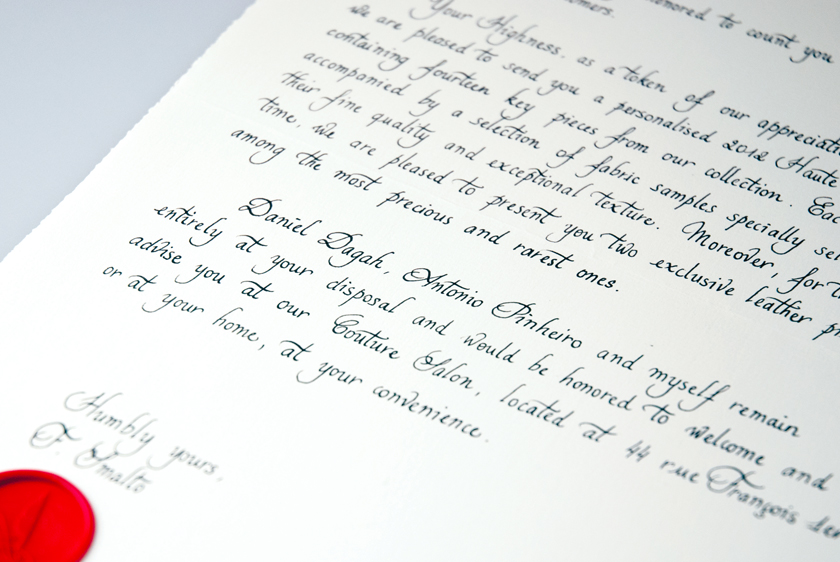 honored to count you
Your Highness, as a token of our appreciation
we are pleased to send you a personalised 2012 Haute
containing fourteen key pieces from our collection. Each
accompanied by a selection of fabric samples specially
their fine quality and exceptional texture. Moreover, for
time, we are pleased to present you two exclusive leather
among the most precious and rarest ones.
Daniel Dagah, Antonio Pinheiro and myself remain
entirely at your disposal and would be honored to welcome and
advise you at our Couture Salon, located at 44 rue François
or at your home, at your convenience.
Humbly yours,
F. Smalto